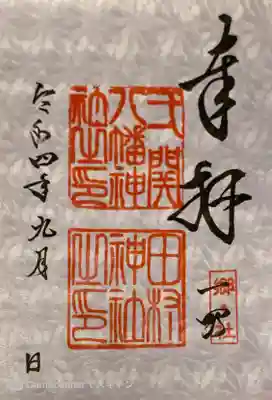 奉拝
郷社
弌關
八幡神
社之印
田村
神社
之印
令和四年九月 日